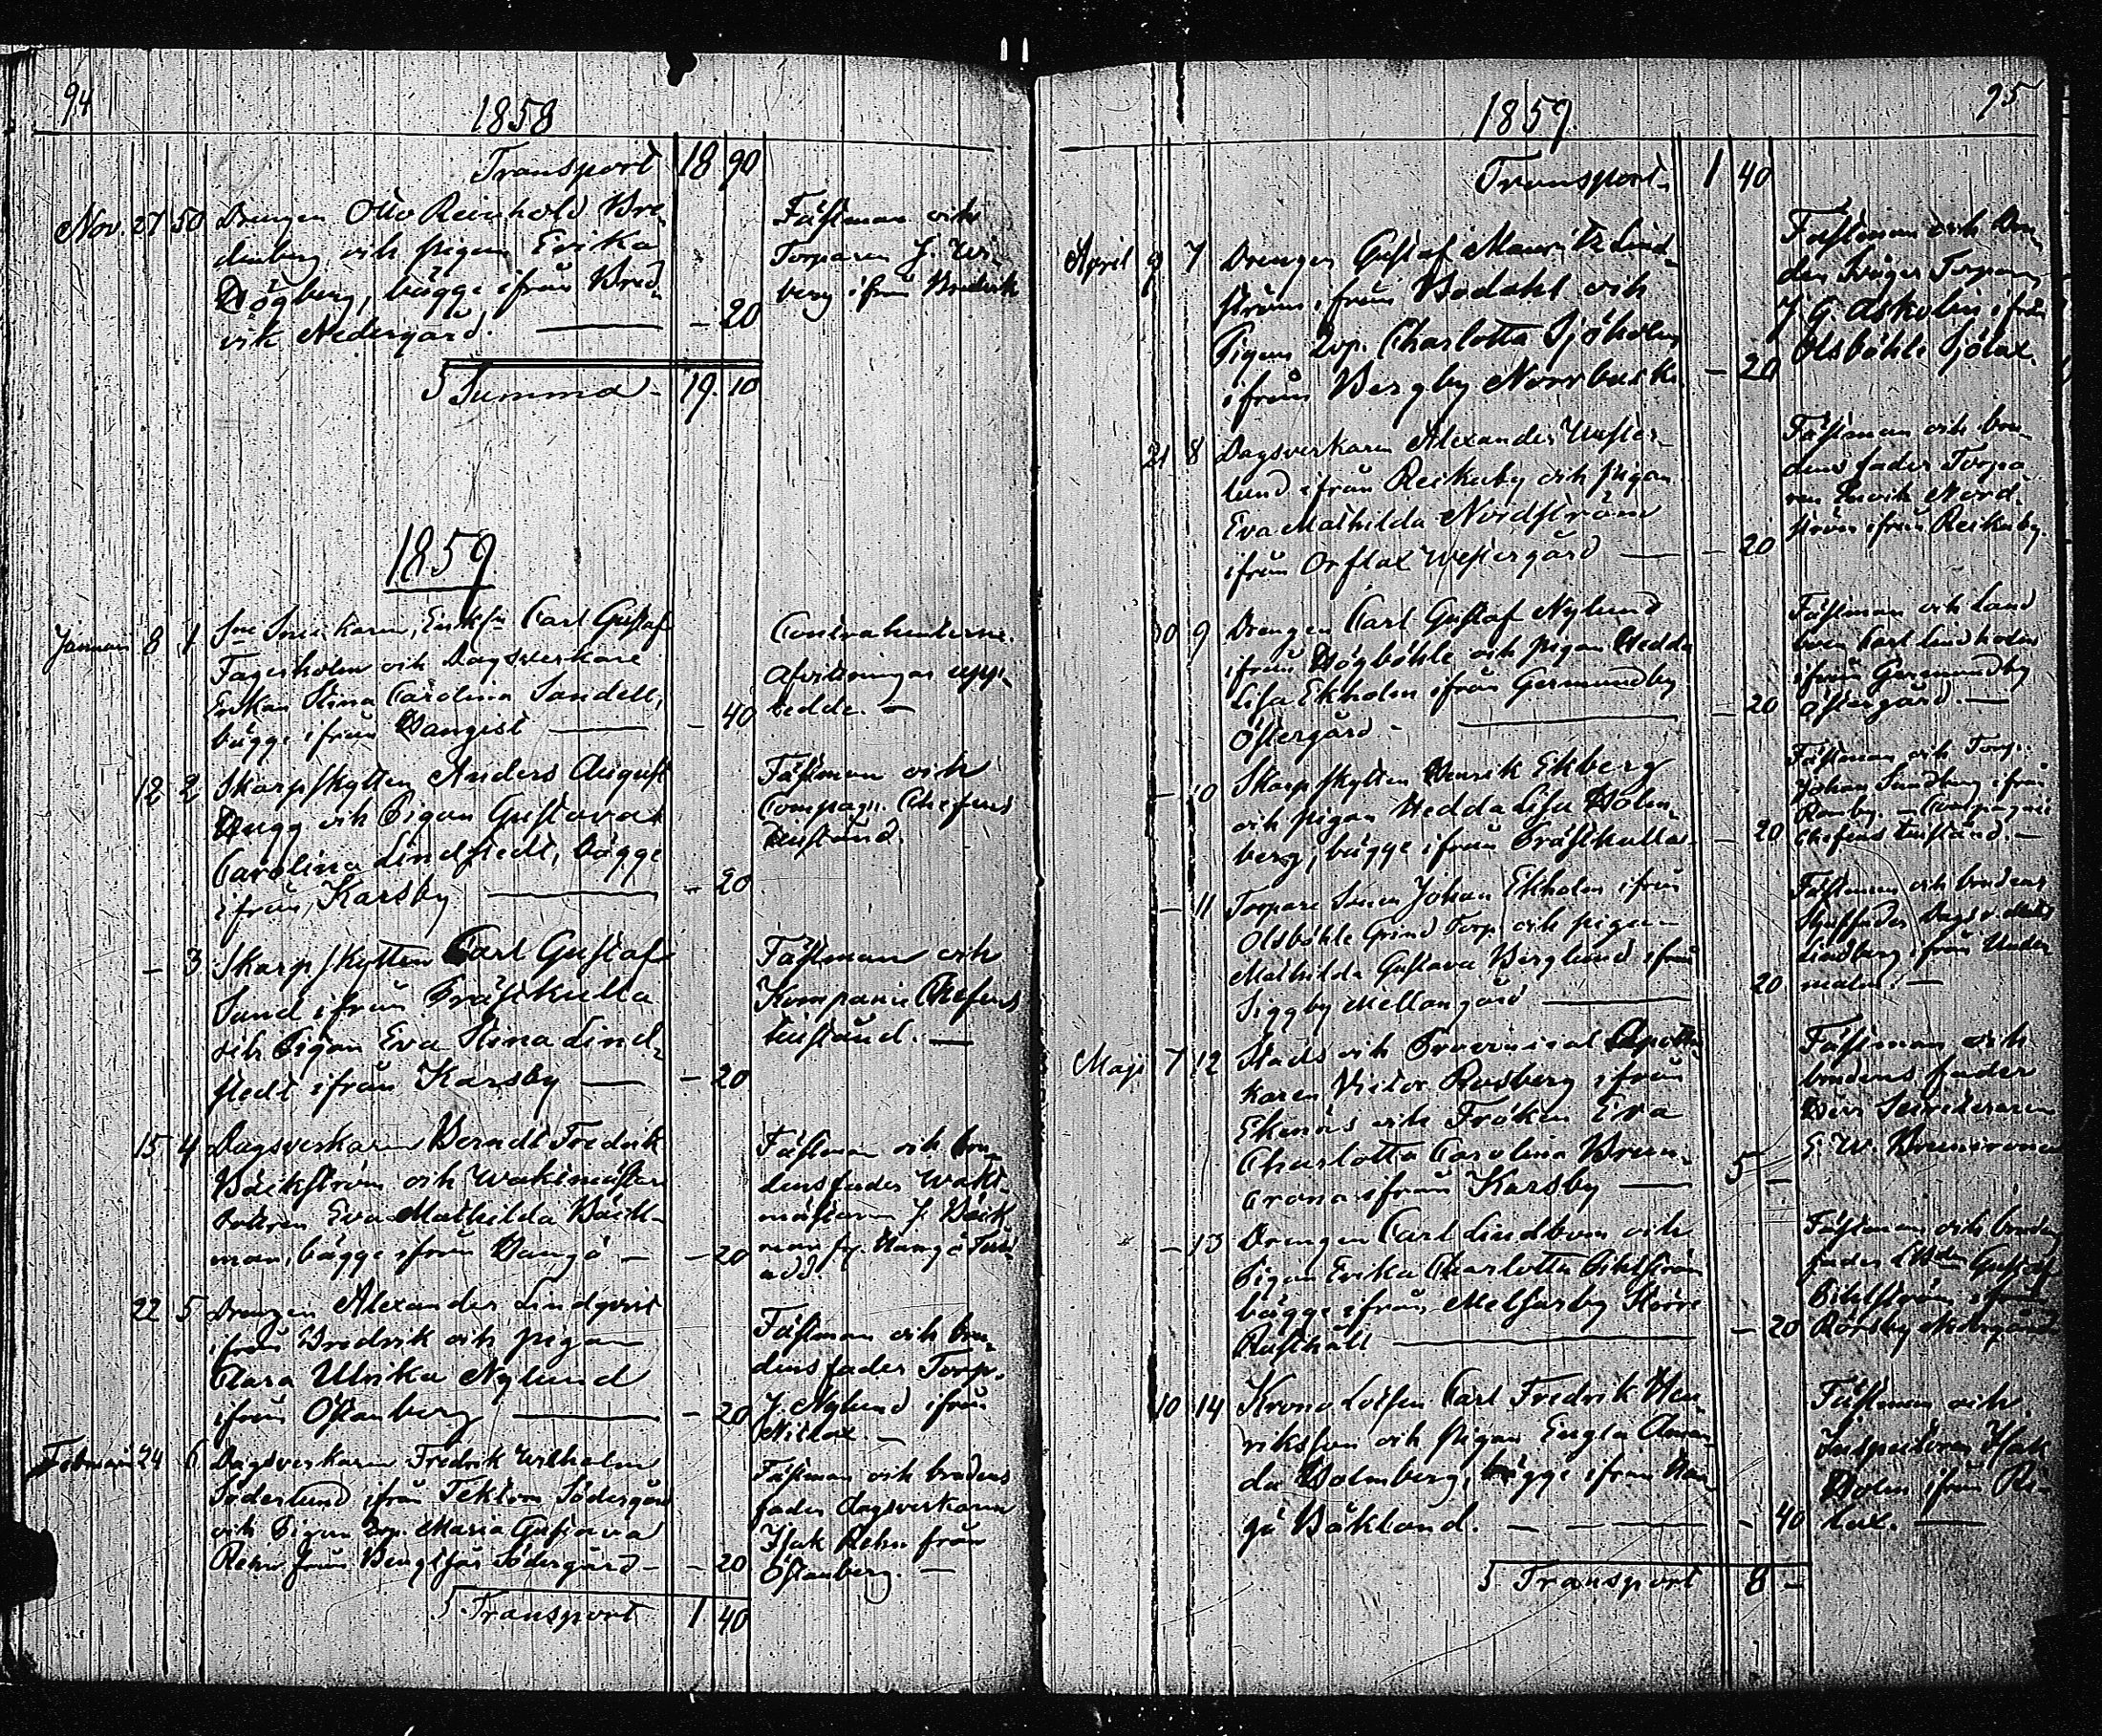 94
1858
Transport 18 90
Nov. 27 50 Drengen Otto Reinhold Bre-
denberg och pigan Erika
Högberg, bägge ifrån Bred-
vik Nedergård. — - 20
Fästman och
Torparen J. Wi-
berg ifrån Bredvik
Summa - 19. 10
1859
Januari 8 1 Carl Gustaf
Fagerholm och Dagsverkare
Enkan Stina Carolina Sandell,
bägge ifrån Hangist — - 40
Contrahenterne.
Afvittningar upp-
tedde. —
12 2 Skarpskytten Anders August
Hugg och Pigan Gustava
Carolina Lindstedt, bägge
ifrån Karsby — - 20
Fästman och
Compagn. Chefens
tillstånd.
- 3 Skarpskytten Carl Gustaf
Sand ifrån Prästkulla
och Pigan Eva Stina Lind-
stedt ifrån Karsby — - 20
Fästman och
Kompanie Chefens
tillstånd. —
15 4 Dagsverkaren Berndt Fredrik
Bäckström och Waktmästare
dottren Eva Mathilda Bäck-
man, bägge ifrån Hangö — - 20
Fästman och bru-
dens fader Wakt-
mästaren J. Bäck
man fr. Hangö
22 5 Drengen Alexander Lindqvist
ifrån Bredvik och pigan
Clara Ulrika Nylund
ifrån Östanberg — - 20
Fästman och bru-
dens fader Torp.
J. Nylund ifrån
Nitlax. —
Februari 24 6 Dagsverkaren Fredrik Wilhelm
Söderlund ifrån Tektom Södergård
och Pigan Maria Gustava
Rehn från Bengtsår Södergård - - 20
Fästman och brudens
fader dagsverkaren
Isak Rehn från
Östanberg. —
Transport 1 40
95
1859
Transport. 1 40
April 9 7 Drengen Gustaf Mauritz Lind-
ström ifrån Bodahl och
Pigan Charlotta Sjöholm
ifrån Bergby Norrbuski - 20
Fästman och Bru-
dens Svåger Torparen
J G Askolin ifrån
Olsböhle Sjölax.
21 8 Dagsverkaren Alexander Wester-
lund ifrån Reikuby och pigan
Eva Mathilda Nordström
ifrån Orslax Westergård — - 20
Fästman och bru-
dens fader Torpa
ren Nord-
ström ifrån Reikuby.
30 9 Drengen Carl Gustaf Nylund
ifrån Högböhle och pigan Hedda
Lisa Ekholm ifrån Germundby
Östergård - — - 20
Fästman och Land
boen Carl Lindholm
ifrån Germundby
Östergård. —
- 10 Skarpskytten Henrik Ekberg
och pigan Hedda Lisa Holm-
berg, bägge ifrån Prästkulla - - 20
Fästman och Torp.
Johan Sundberg ifrån
Ramby. — Compagnie
chefens tillstånd. —
- 11 Torpare Sonen Johan Ekholm ifrån
Olsböhle Grind Torp. och pigan
Mathilda Gustava Berglund ifrån
Siggby Mellangård — 20
Fästman och brudens
Styffader Dagsv. Mats
Lindberg ifrån Under
malm. —
Maji 7 12 Stads och Provincial Apothe-
karen Victor Rosberg ifrån
Ekenäs och Fröken Eva
Charlotta Carolina Brun-
crona ifrån Karsby — 5 -
Fästman och
brudens fader
Herr
E. W. Bruncrona
- 13 Drengen Carl Lindbom och
Pigan Erika Charlotta Pihlström
bägge ifrån Melsarby Större
Rusthåll — - 20
Fästman och brudens
fader Gustaf
Pihlström ifrån
Rörsby
10 14 Krono Lotsen Carl Fredrik Hen-
riksson och pigan Engla Aman-
da Holmberg, bägge ifrån Han-
gö Bökland. — - 40
Fästman och
Inspectoren Isak
Holm ifrån Ri-
lax. —
Transport 8 -